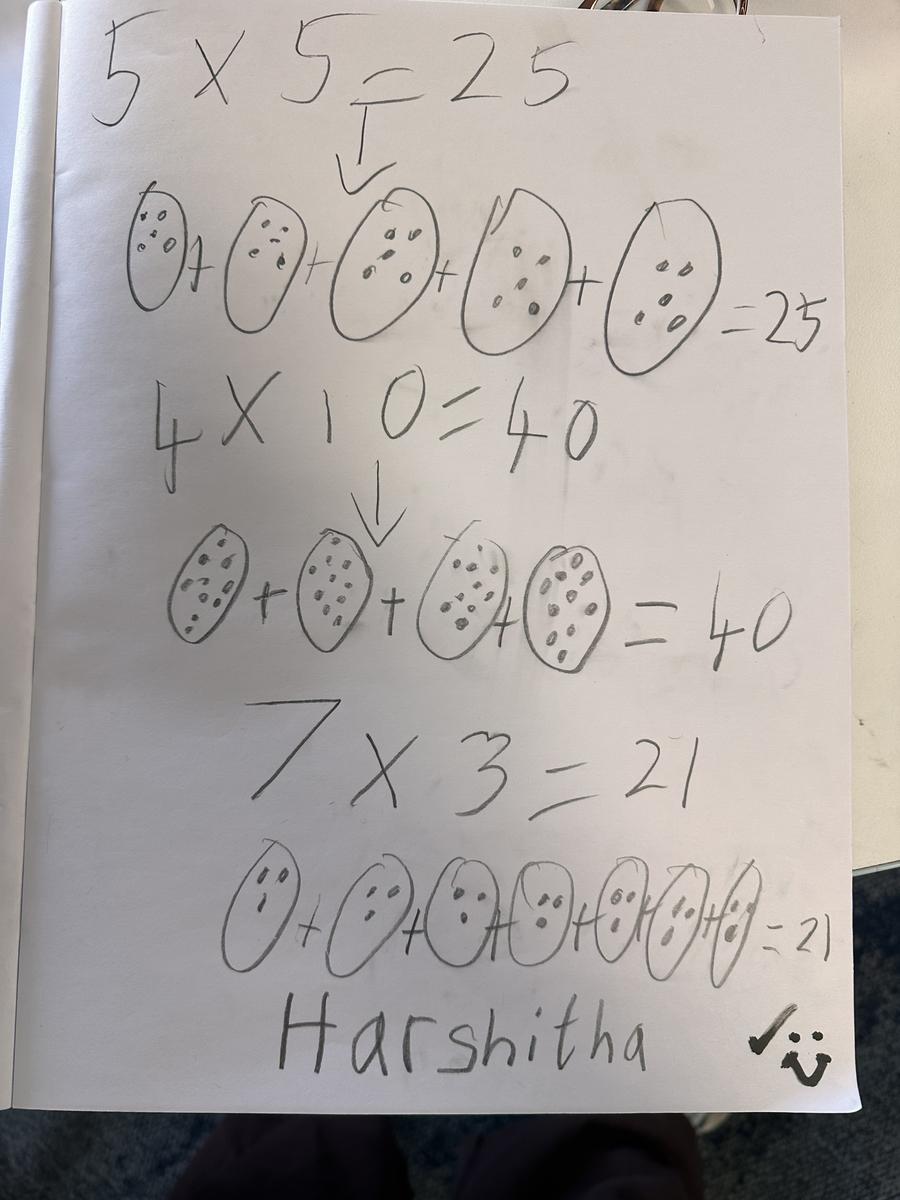 5 x 5 = 25
+ + + + = 25
4 x 10 = 40
+ + + = 40
7 x 3 = 21
+ + + + + + = 21
Harshitha